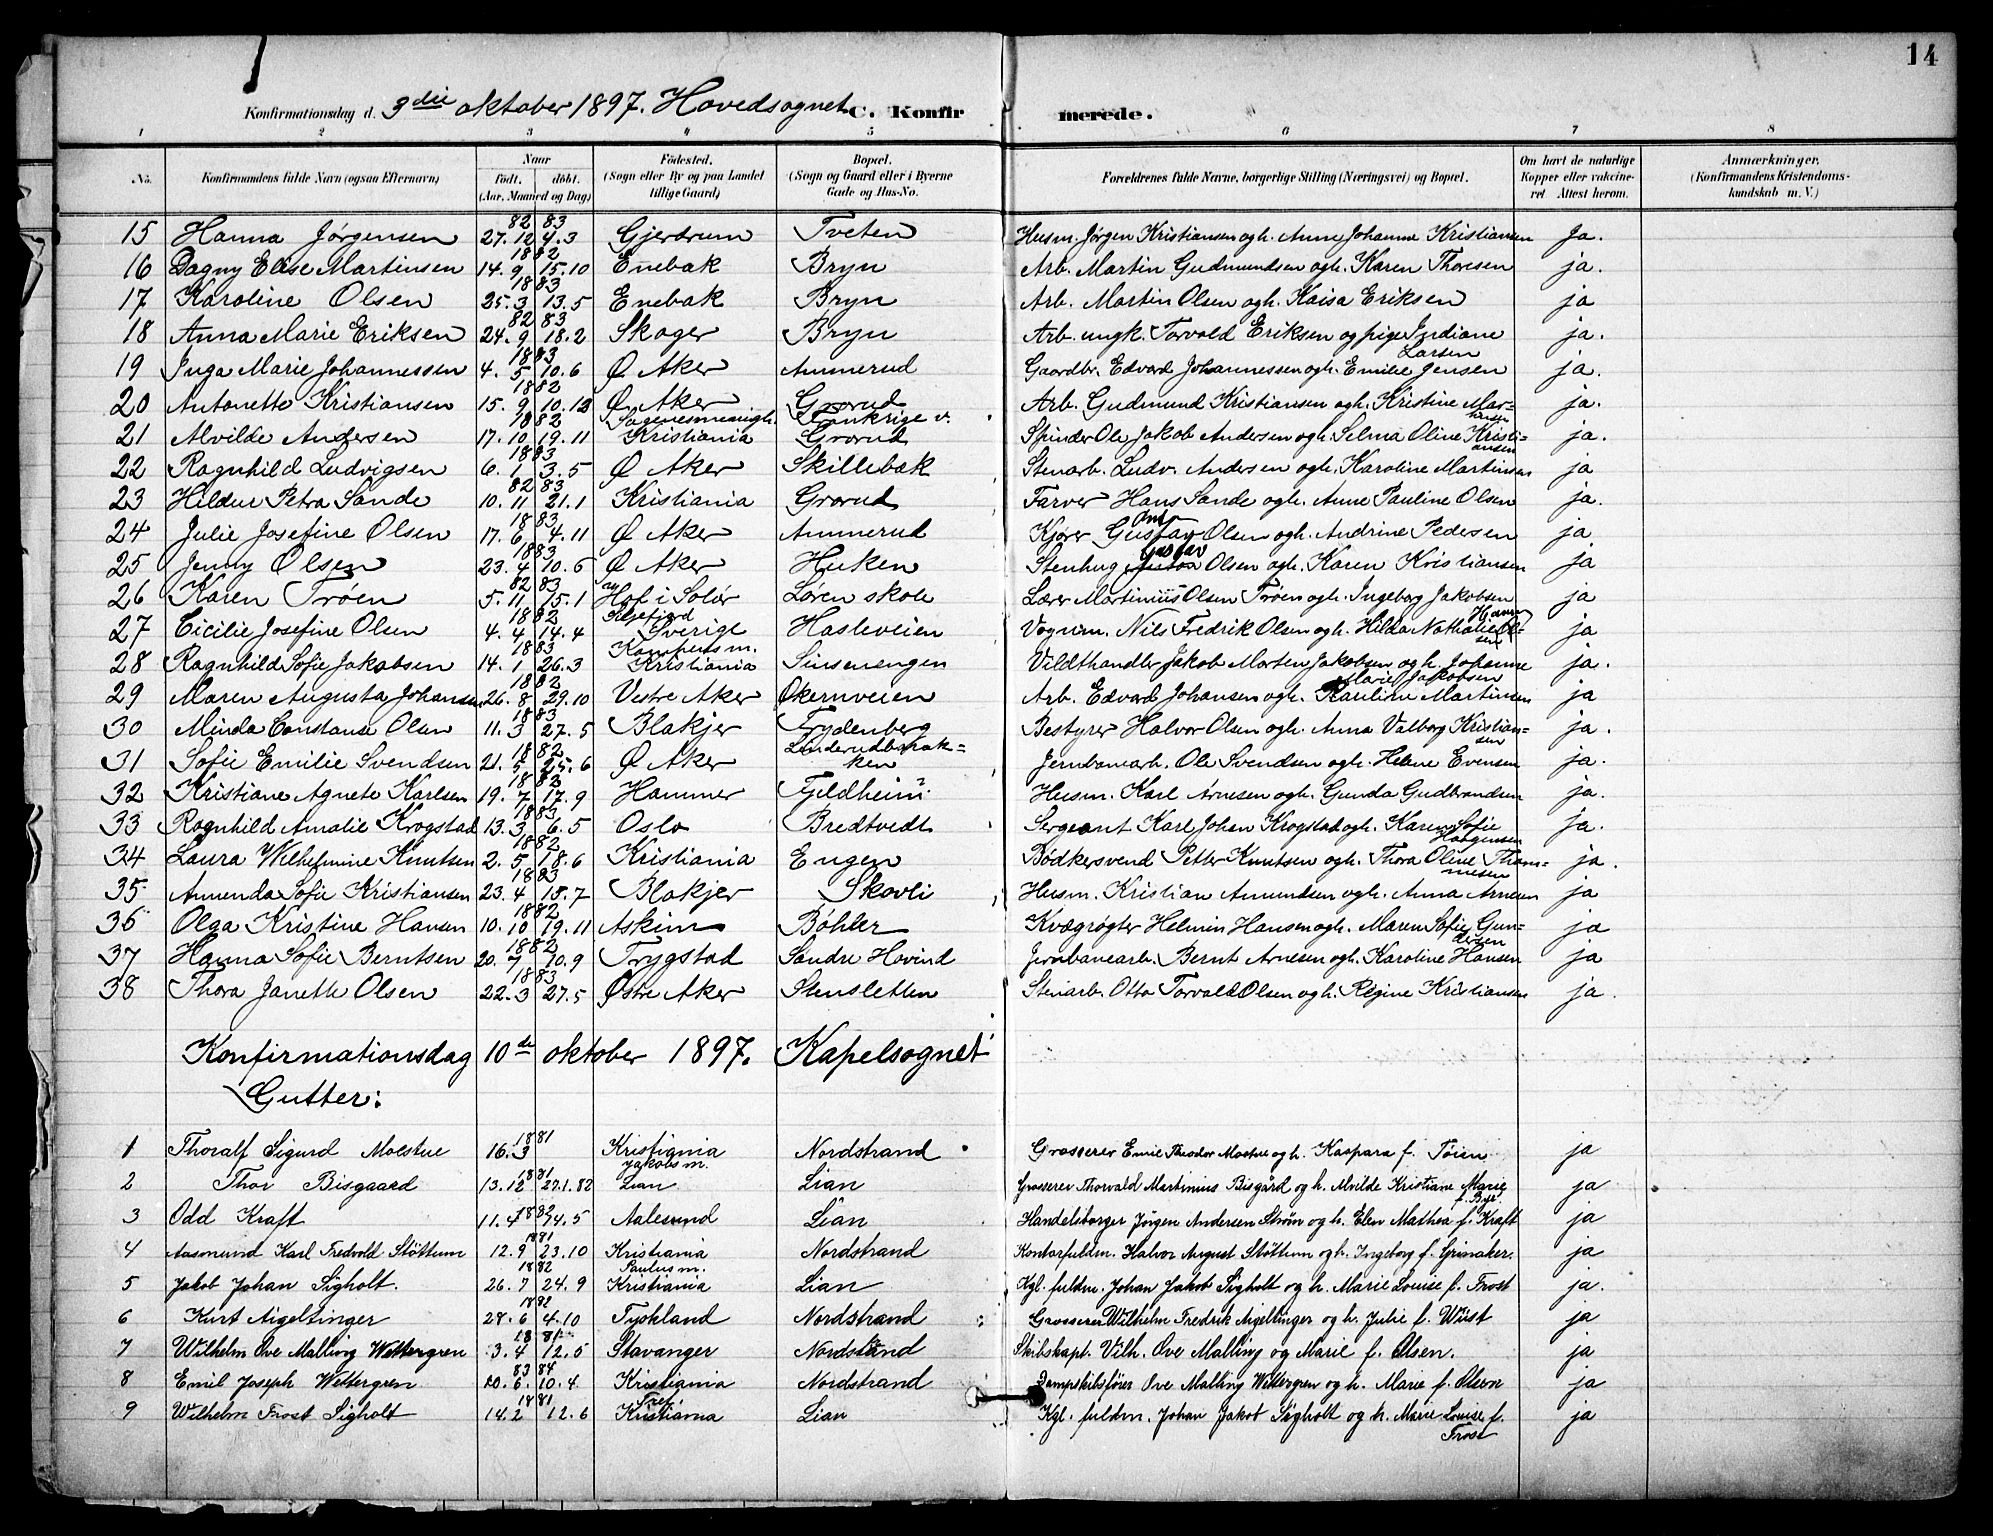 14
Konfirmationsdag d. 3die oktober 1897. Hovedsognet. C. Konfirmerede.
1 2 3 4 5 6 7 8
No. Konfirmandens fulde Navn (ogsaa Efternavn) Naar født. døbt. (Aar, Maaned og Dag) Fødested. (Sogn eller By og paa Landet tillige Gaard) Bopæl. (Sogn og Gaard eller i Byerne Gade og Hus-No. Forældrenes fulde Navne, borgerlige Stilling (Næringsvei) og Bopæl. Om havt de naturlige Kopper eller vakcineret Attest herom. Anmærkninger. (Konfirmandens Kristendomskundskab m. V.)
15 Hanna Jørgensen 82 27.12 83 4.3 Gjerdrum Tveten Husm. Jørgen Kristiansen og h. Anne Johanne Kristiansen Ja.
16 Dagny Elise Martinsen 1882 14.9 15.10 Enebak Bryn Arb. Martin Gudmundsen og h. Karen Thoresen ja.
17 Karoline Olsen 1883 25.3 13.5 Enebak Bryn Arb. Martin Olsen og h. Kaisa Eriksen ja
18 Anna Marie Eriksen 82 24.9 83 18.2 Skoger Bryn Arb. ungk. Torvald Eriksen og pige Indiane Larsen ja.
19 Inga Marie Johannessen 1883 4.5 10.6 Ø Aker Ammerud Gaardbr. Edvard Johannessen og h. Emilie Jensen ja.
20 Antonette Kristiansen 1882 15.9 10.12 Ø Aker Grorud Arb. Gudmund Kristiansen og h. Kristine Mar= ja.
21 Alvilde Andersen 1882 17.10 19.11 Sagenesmenigh. Kristiania Grorud Spinder Ole Jakob Andersen og h. Selma Oline Kristiansen ja.
22 Ragnhild Ludvigsen 1883 6.1 3.5 Ø Aker Skillebæk Stenarb. Ludv. Andersen og h. Karoline Martinsen ja
23 Hildur Petra Sande 82 10.11 83 21.1 Kristiania Grorud Farver Hans Sande og h. Anne Pauline Olsen ja.
24 Julie Josefine Olsen 1883 17.6 4.11 Ø Aker Ammerud Kjører Gustav Olsen og h. Andrine Pedersen ja
25 Jenny Olsen 1883 23.4 10.6 Ø Aker Huken Stenhug. Gustav Olsen og h. Karen Kristiansen ja
26 Karen Trøen 82 5.11 83 15.1 Hof i Solør Løren skole Lærer Martinius Olsen Trøen og h. Ingeborg Jakobsen ja
27 Cicilie Josefine Olsen 1882 4.4 14.4 Sverige Hasleveien Vognm. Nils Fredrik Olsen og h. Hilda Nathalie Olsen ja
28 Ragnhild Sofie Jakobsen 1883 14.1 26.3 Kampens m. Kristiania Sinsenengen Vildthandler Jakob Morten Jakobsen og h. Johanne Marie Jakobsen ja.
29 Maren Augusta Johansen 1882 26.8 29.10 Vestre Aker Økernveien Arb. Edvard Johansen og h. Pauline Martinsen ja
30 Minda Constance Olsen 1883 11.3 27.5 Blakjer Frydenberg Bestyrer Halvor Olsen og h. Anna Valborg Kristiansen ja.
31 Sofie Emilie Svendsen 1882 21.5 25.6 Ø Aker Linderudbakken Jernbanearb. Ole Svendsen og h. Helene Evensen ja.
32 Kristiane Agnete Karlsen 1882 19.7 17.9 Hammer Fjeldheim Husm. Karl Arnesen og h. Gunda Gudbrandsen ja.
33 Ragnhild Amalie Krogstad 1883 13.3 6.5 Oslo Bredtvedt Sergeant Karl Johan Krogstad og h. Karen Sofie ja.
34 Laura Wilhelmine Knutsen 1882 2.5 18.6 Kristiania Engen Bødkersvend Petter Knutsen og h. Thora Oline Thommesen ja.
35 Amenda Sofie Kristiansen 1883 23.4 15.7 Blakjer Skovli Husm. Kristian Amundsen og h. Anna Arnesen ja
36 Olga Kristine Hansen 1882 10.10 19.11 Askim Bøhler Kvægrøgter Helmin Hansen og h. Maren Sofie Gundersen ja
37 Hanna Sofie Berntsen 1882 20.7 10.9 Trygstad Søndre Hovind Jernbanearb. Bernt Arnesen og h. Karoline Hansen ja
38 Thora Janette Olsen 1883 22.3 27.5 Østre Aker Stensletten Stenarb. Otto Torvald Olsen og h. Regine Kristiansen ja.
Konfirmationsdag 10de oktober 1897. Kapelsognet
Gutter:
1 Thoralf Sigurd Moestue 1881 16.3 Kristiania Jakobs m. Nordstrand Grosserer Emil Theodor Moestue og h. Kaspara f. Tøien ja
2 Thor Bisgaard 1881 13.12 27.1.82 Lian Lian Grosserer Thorvald Martinius Bisgård og h. Alvilde Kristiane Marie f. Bye. ja
3 Odd Kraft 1882 11.4 14.5 Aalesund Lian Handelsborger Jørgen Andersen Strøm og h. Elen Mathea f. Kraft ja
4 Aasmund Karl Fredvold Støttum 1881 12.9 23.10 Kristiania Nordstrand Kontorfuldm. Halvor August Støttum og h. Ingeborg f. Grinaker. ja
5 Jakob Johan Sigholt. 1882 26.7 24.9 Paulus m. Kristiania Lian Kgl. fuldm. Johan Jakob Sigholt og h. Marie Louise f. Frost ja.
6 Kurt Aigeltinger 1882 28.6 4.10 Tyskland Nordstrand Grosserer Wilhelm Fredrik Aigeltinger og h. Julie f. Wüst ja
7 Wilhelm Ove Malling Wettergren 1881 3.4 12.5 Stavanger Nordstrand Skibskapt. Vilh. Ove Malling og Marie f. Olsen. ja
8 Emil Joseph Wettergren 83 20.6 84 10.4 Kristiania Nordstrand Dampskibsfører Ove Malling Wettergren og h. Marie f. Olsen ja
9 Wilhelm Frost Sigholt 1881 14.2 12.6 Tref. Kristiania Lian Kgl. fuldm. Johan Jakob Sigholt og h. Marie Louise f. Frost ja